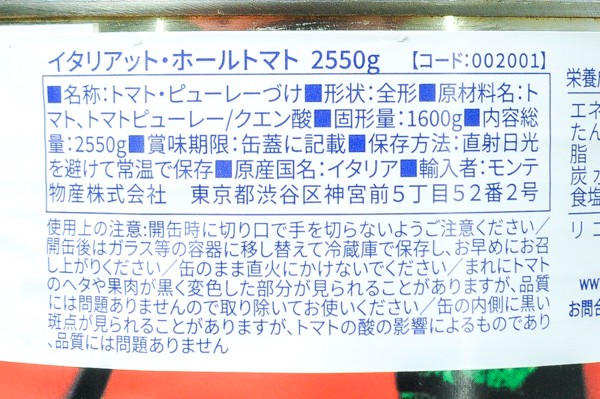 イタリアット・ホールトマト 2550g 【コード:002001】
■名称:トマト・ピューレーづけ■形状:全形■原材料名:ト
マト、トマトピューレー/クエン酸■固形量:1600g■内容総
量:2550g■賞味期限:缶蓋に記載■保存方法:直射日光
を避けて常温で保存■原産国名:イタリア■輸入者:モンテ
物産株式会社 東京都渋谷区神宮前5丁目52番2号
使用上の注意:開缶時に切り口で手を切らないようご注意ください/
開缶後はガラス等の容器に移し替えて冷蔵庫で保存し、お早めにお召
し上がりください/缶のまま直火にかけないでください/まれにトマト
のヘタや果肉が黒く変色した部分が見られることがありますが、品質
には問題ありませんので取り除いてお使いください/缶の内側に黒い
斑点が見られることがありますが、トマトの酸の影響によるものであり
、品質には問題ありません
栄養
エネ
たん
脂
炭水
食塩
リコ
ww
お問合